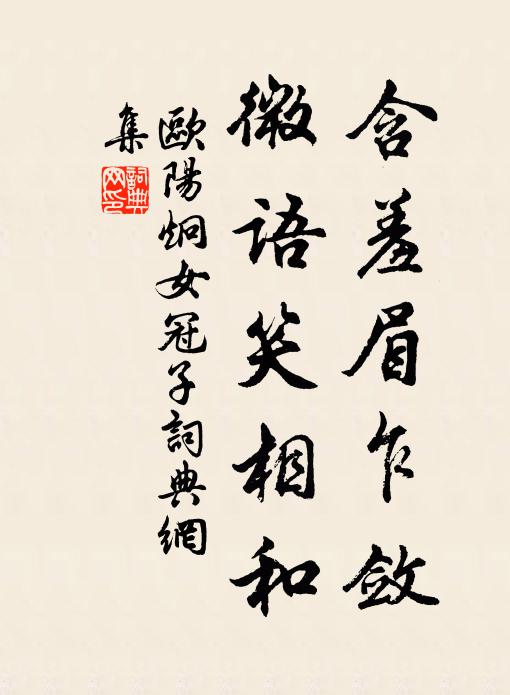 含羞眉乍斂
微語笑相和
歐陽炯女冠子詞典網
集
詞典網印